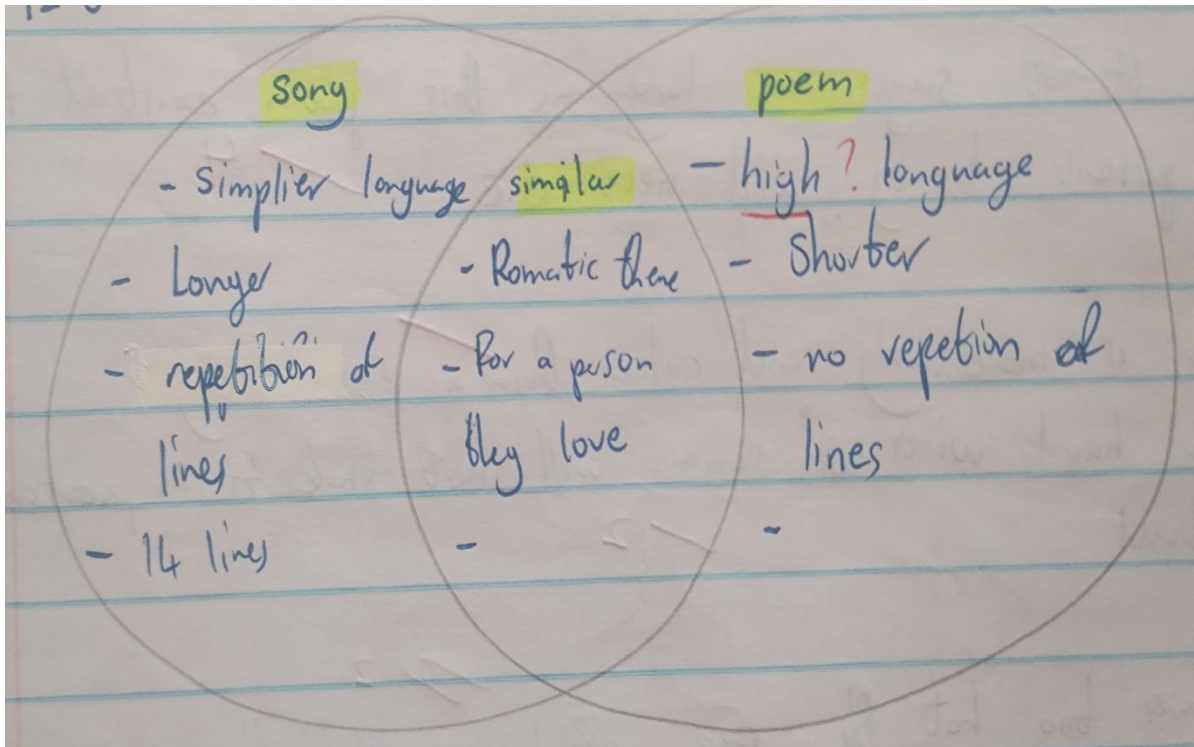 song
- Simplier language
- Longer
- repetition of
lines
- 14 lines
similar
- Romatic theme
- For a person
they love
-
poem
- high ? language
- Shorter
- no repetion of
lines
-